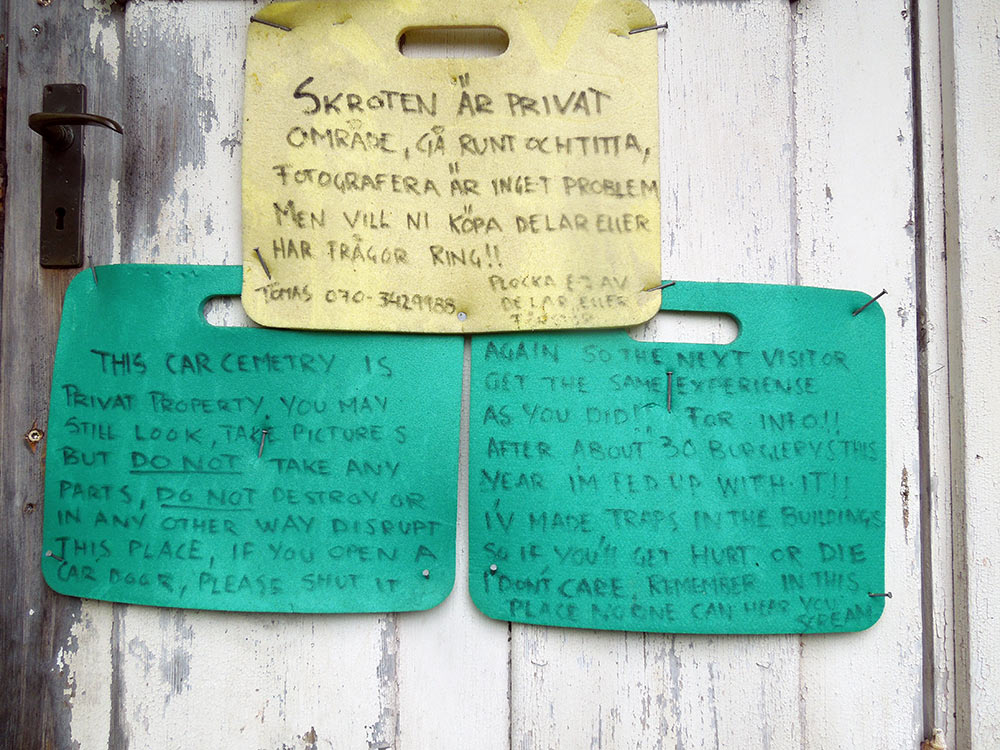 SKROTEN ÄR PRIVAT
OMRÅDE, GÅ RUNT OCH TITTA,
FOTOGRAFERA ÄR INGET PROBLEM
MEN VILL NI KÖPA DELAR ELLER
HAR FRÅGOR RING!!
TOMAS 070-3429988
PLOCKA EJ AV
DELAR, ELLER
THIS CAR CEMETRY IS
PRIVAT PROPERTY. YOU MAY
STILL LOOK, TAKE PICTURES
BUT DO NOT TAKE ANY
PARTS, DO NOT DESTROY OR
IN ANY OTHER WAY DISRUPT
THIS PLACE, IF YOU OPEN A
CAR DOOR, PLEASE SHUT IT
AGAIN SO THE NEXT VISITOR
GET THE SAME EXPERIENSE
AS YOU DID!! FOR INFO!!
AFTER ABOUT 30 BURGLERYS THIS
YEAR IM FED UP WITH IT!!
I'V MADE TRAPS IN THE BUILDINGS
SO IF YOU'LL GET HURT OR DIE
I DONT CARE. REMEMBER IN THIS
PLACE NO ONE CAN HEAR YOU
SCREAM